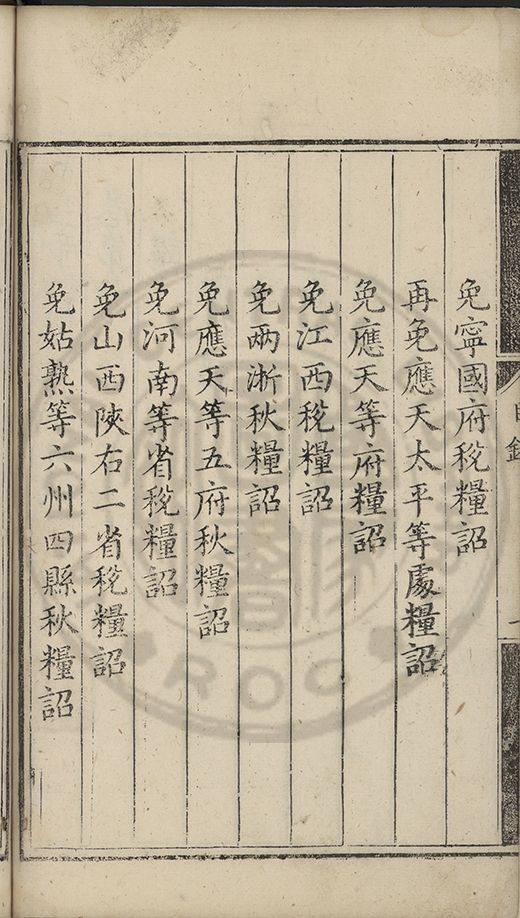 免寧國府稅糧詔
再免應天太平等處糧詔
免應天等府糧詔
免江西稅糧詔
免兩浙秋糧詔
免應天等五府秋糧詔
免河南等省稅糧詔
免山西陝右二省稅糧詔
免姑熟等六州四縣秋糧詔